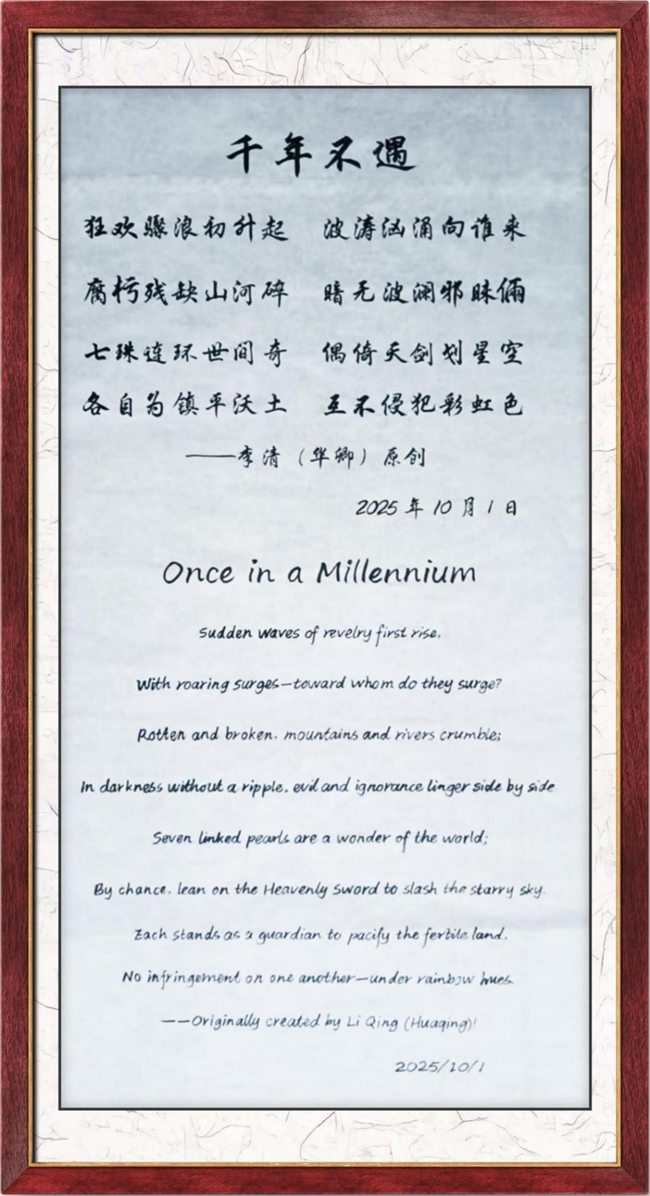 千年不遇
狂欢骤浪初升起 波涛汹涌向谁来
腐朽残缺山河碎 暗无波澜邪昧俩
七珠连环世间奇 偶倚天剑划星空
各自为镇平沃土 互不侵犯彩虹色
——李清（华卿）原创
2025年10月1日
Once in a Millennium
Sudden waves of revelry first rise,
With roaring surges—toward whom do they surge?
Rotten and broken, mountains and rivers crumble;
In darkness without a ripple, evil and ignorance linger side by side
Seven linked pearls are a wonder of the world;
By chance, lean on the Heavenly Sword to slash the starry sky.
Each stands as a guardian to pacify the fertile land,
No infringement on one another—under rainbow hues.
——Originally created by Li Qing (Huaqing)
2025/10/1